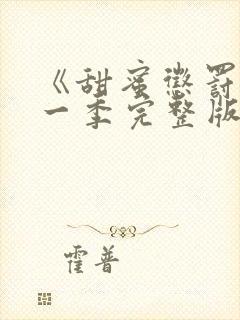 《甜蜜惩罚
一季完整版
霍普